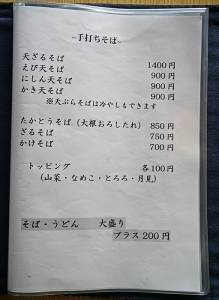 ~手打ちそば~
天ざるそば 1400円
えび天そば 900円
にしん天そば 900円
かき天そば 900円
※天ぷらそばは冷やしもできます
たかとうそば(大根おろしたれ) 850円
ざるそば 750円
かけそば 700円
トッピング 各100円
(山菜・なめこ・とろろ・月見)
そば・うどん 大盛り
プラス200円